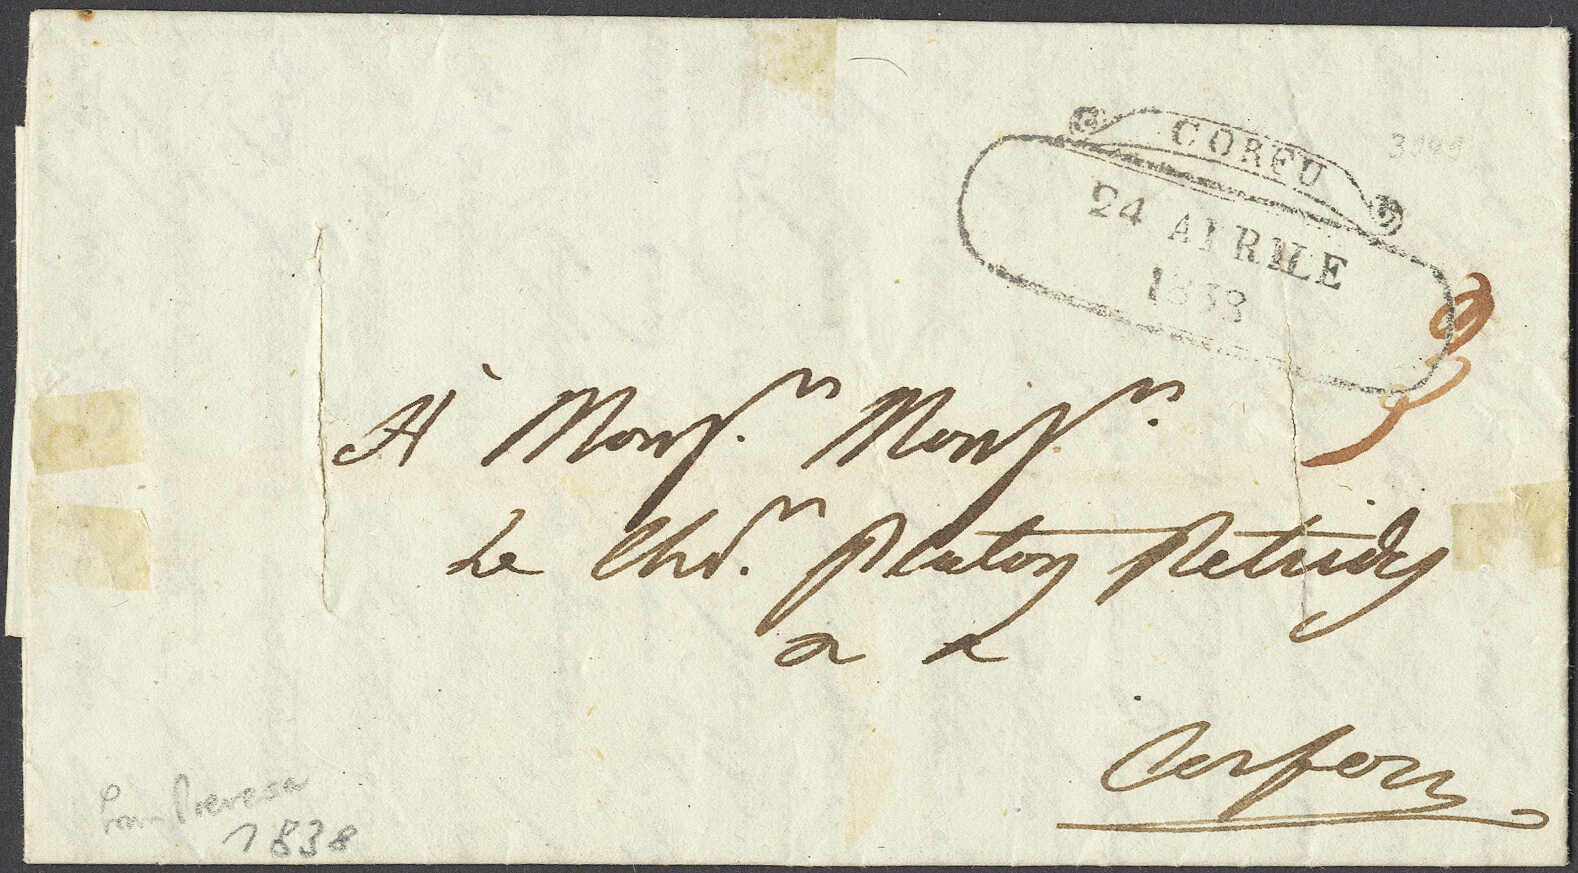 CORFU
24 APRILE
1838
À Monsr. Monsr.
Le Chr. Platon Petridy
a a
Corfou
from Prevesa
1838